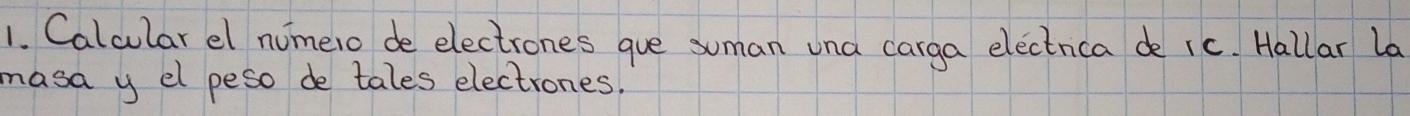 1. Calcular el número de electrones que suman una carga eléctrica de 1C. Hallar la
masa y el peso de tales electrones.